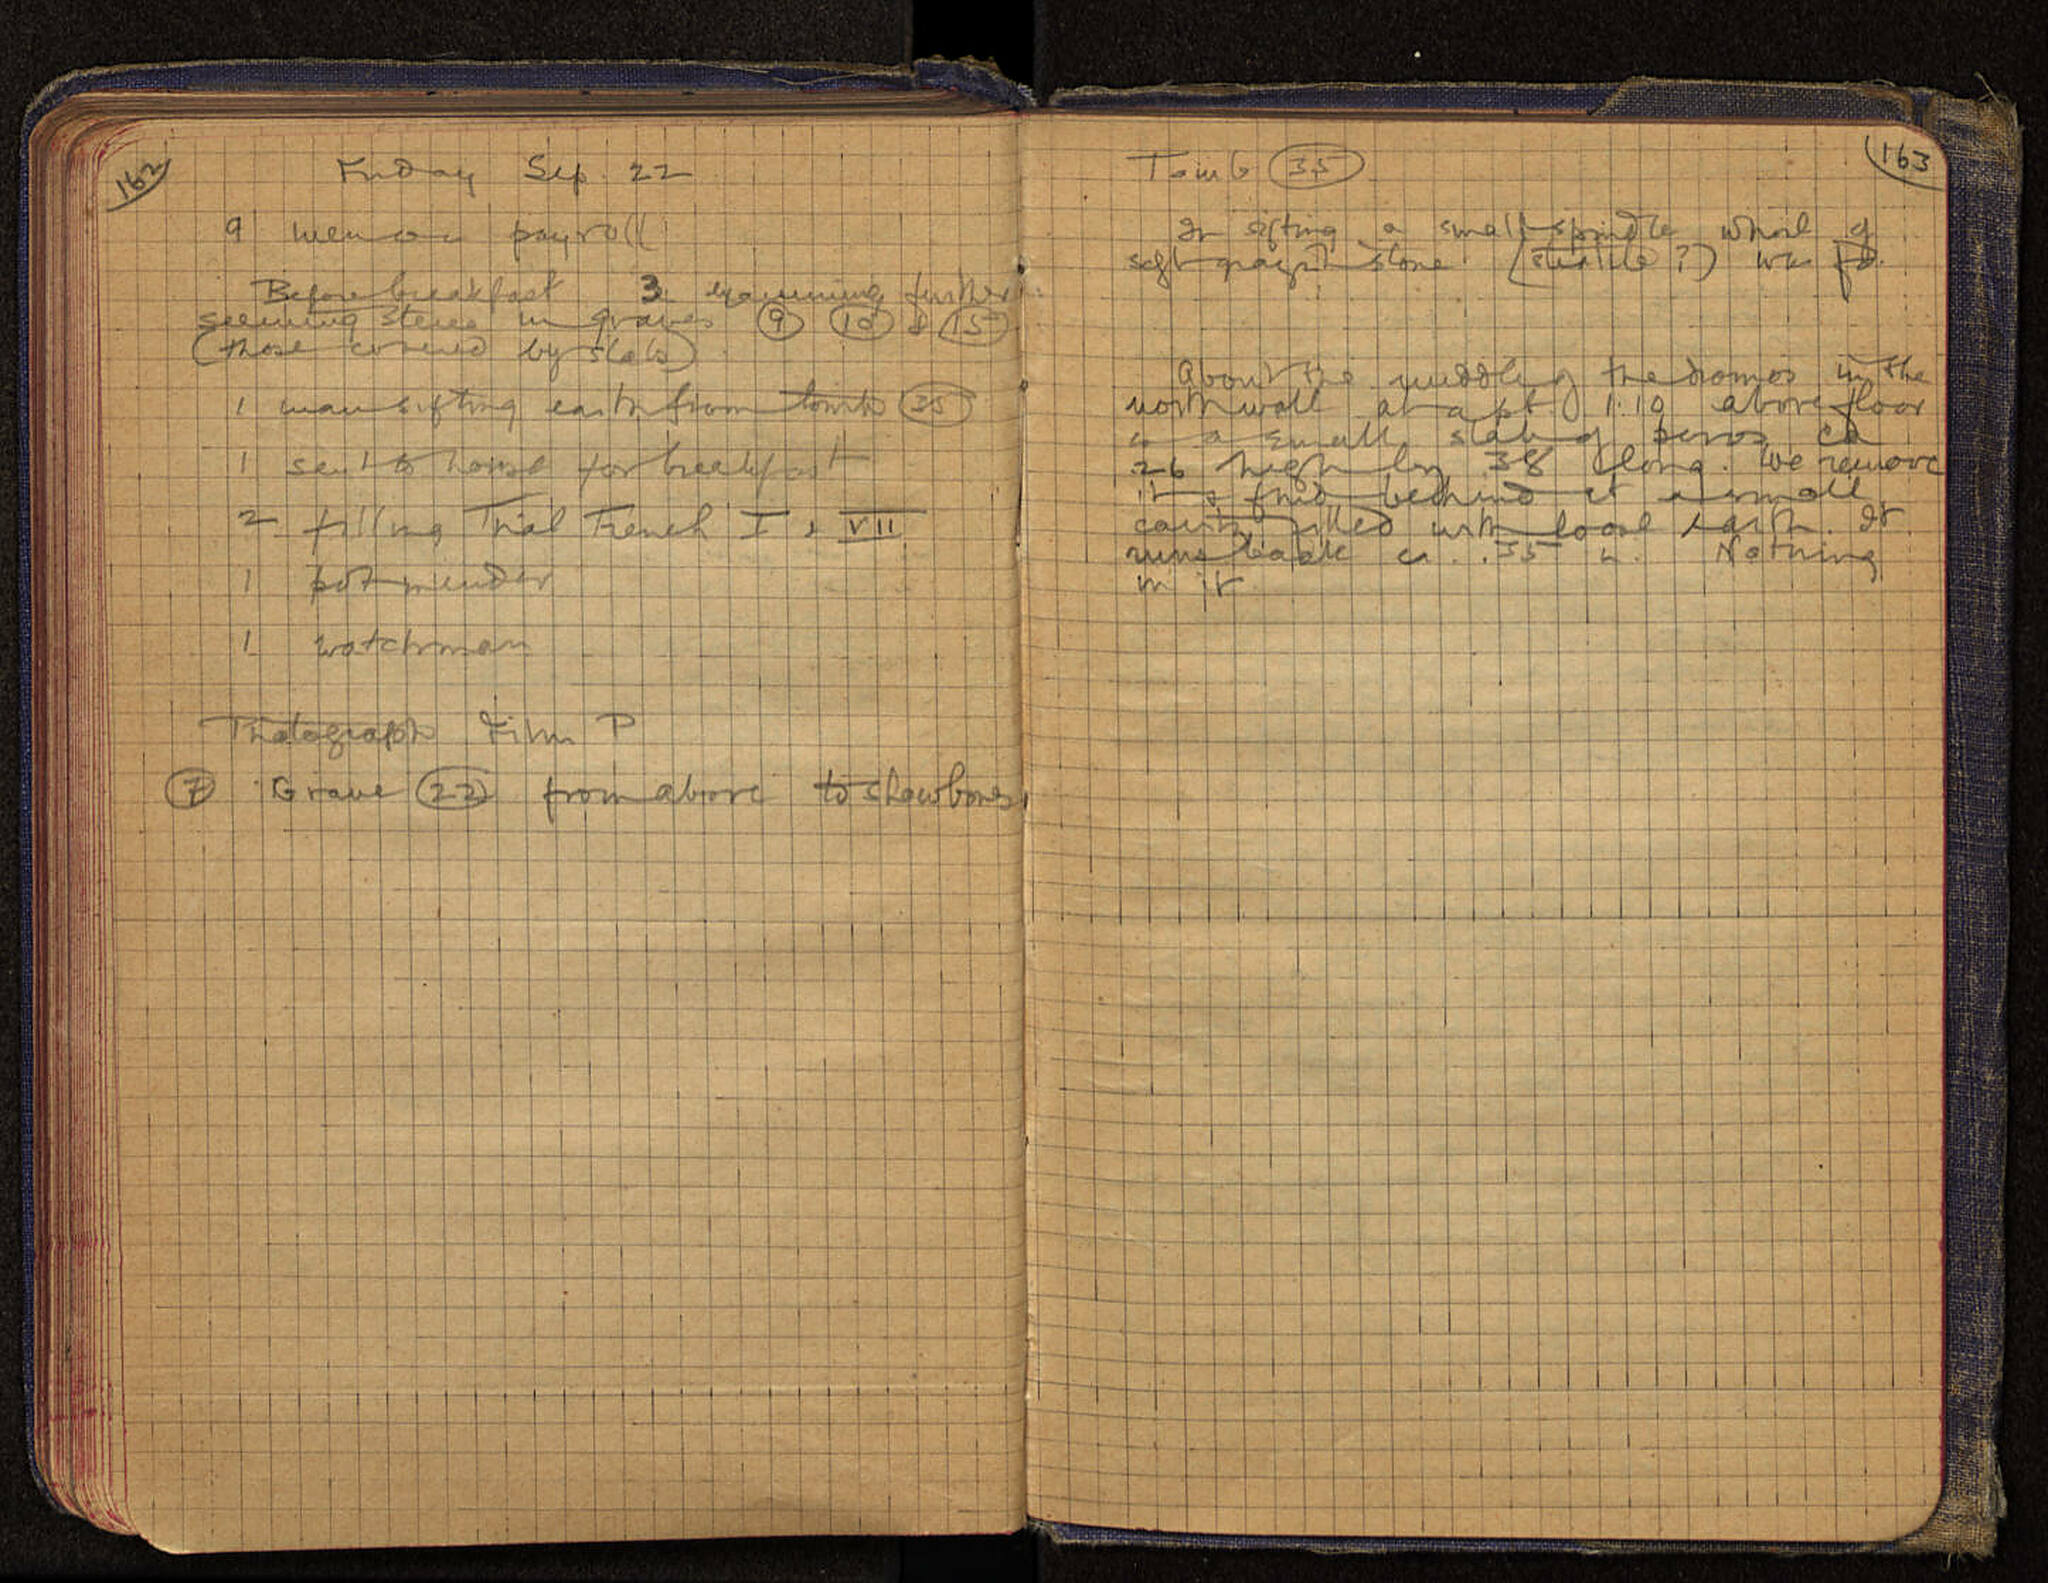 162
Friday Sep. 22
9 men on payroll
Before breakfast 3 examining further
seeming stereo in graves 9 10 & 15
(those covered by slabs)
1 man sifting earth from tomb 35
1 sent to house for breakfast
2 filling Trial Trench I, VII
1 pot mender
1 watchman
Photograph Film P
7 Grave 22 from above to show bones
163
Tomb 35
In sifting a small spindle whorl of
soft grayish stone (steatite?) was fd.
About the middle of the dromos in the
north wall at a pt. 1.10 above floor
is a small slab of poros ca
.26 high by .38 long. We remove
it & find behind it a small
cavity filled with loose earth. It
runs back ca. .35 m. Nothing
in it